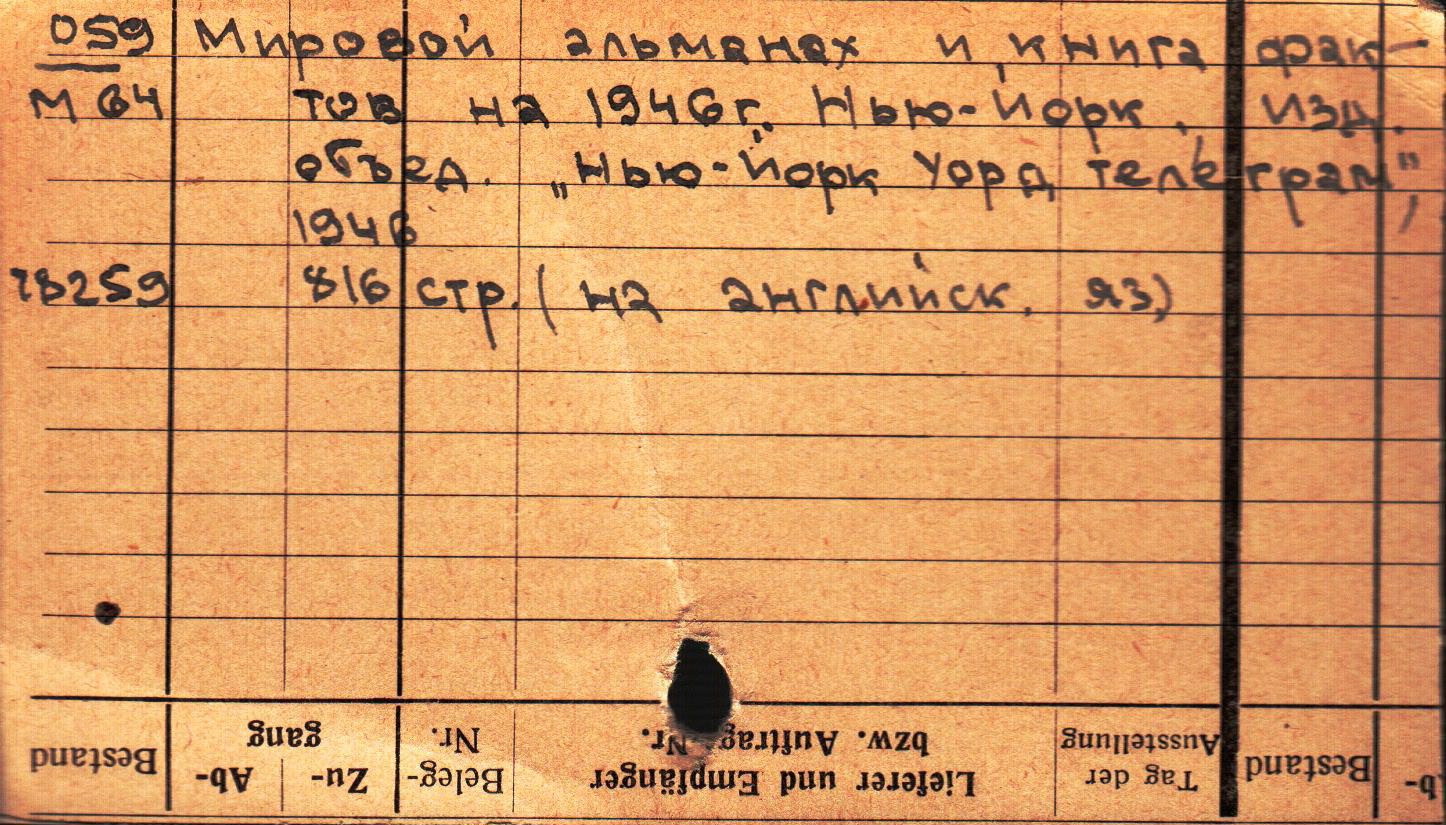 059 Мировой альманах и книга фак-
М 64 тов на 1946г. Нью-Йорк, изд.
объед. „Нью-Йорк Уорд телеграм",
1946
78259 816 стр. (на английск. яз)
Bestand
Ab- Zu- gang
Beleg- Nr.
Lieferer und Empfänger
bzw. Auftrags Nr.
Tag der Ausstellung
Bestand
Ab-